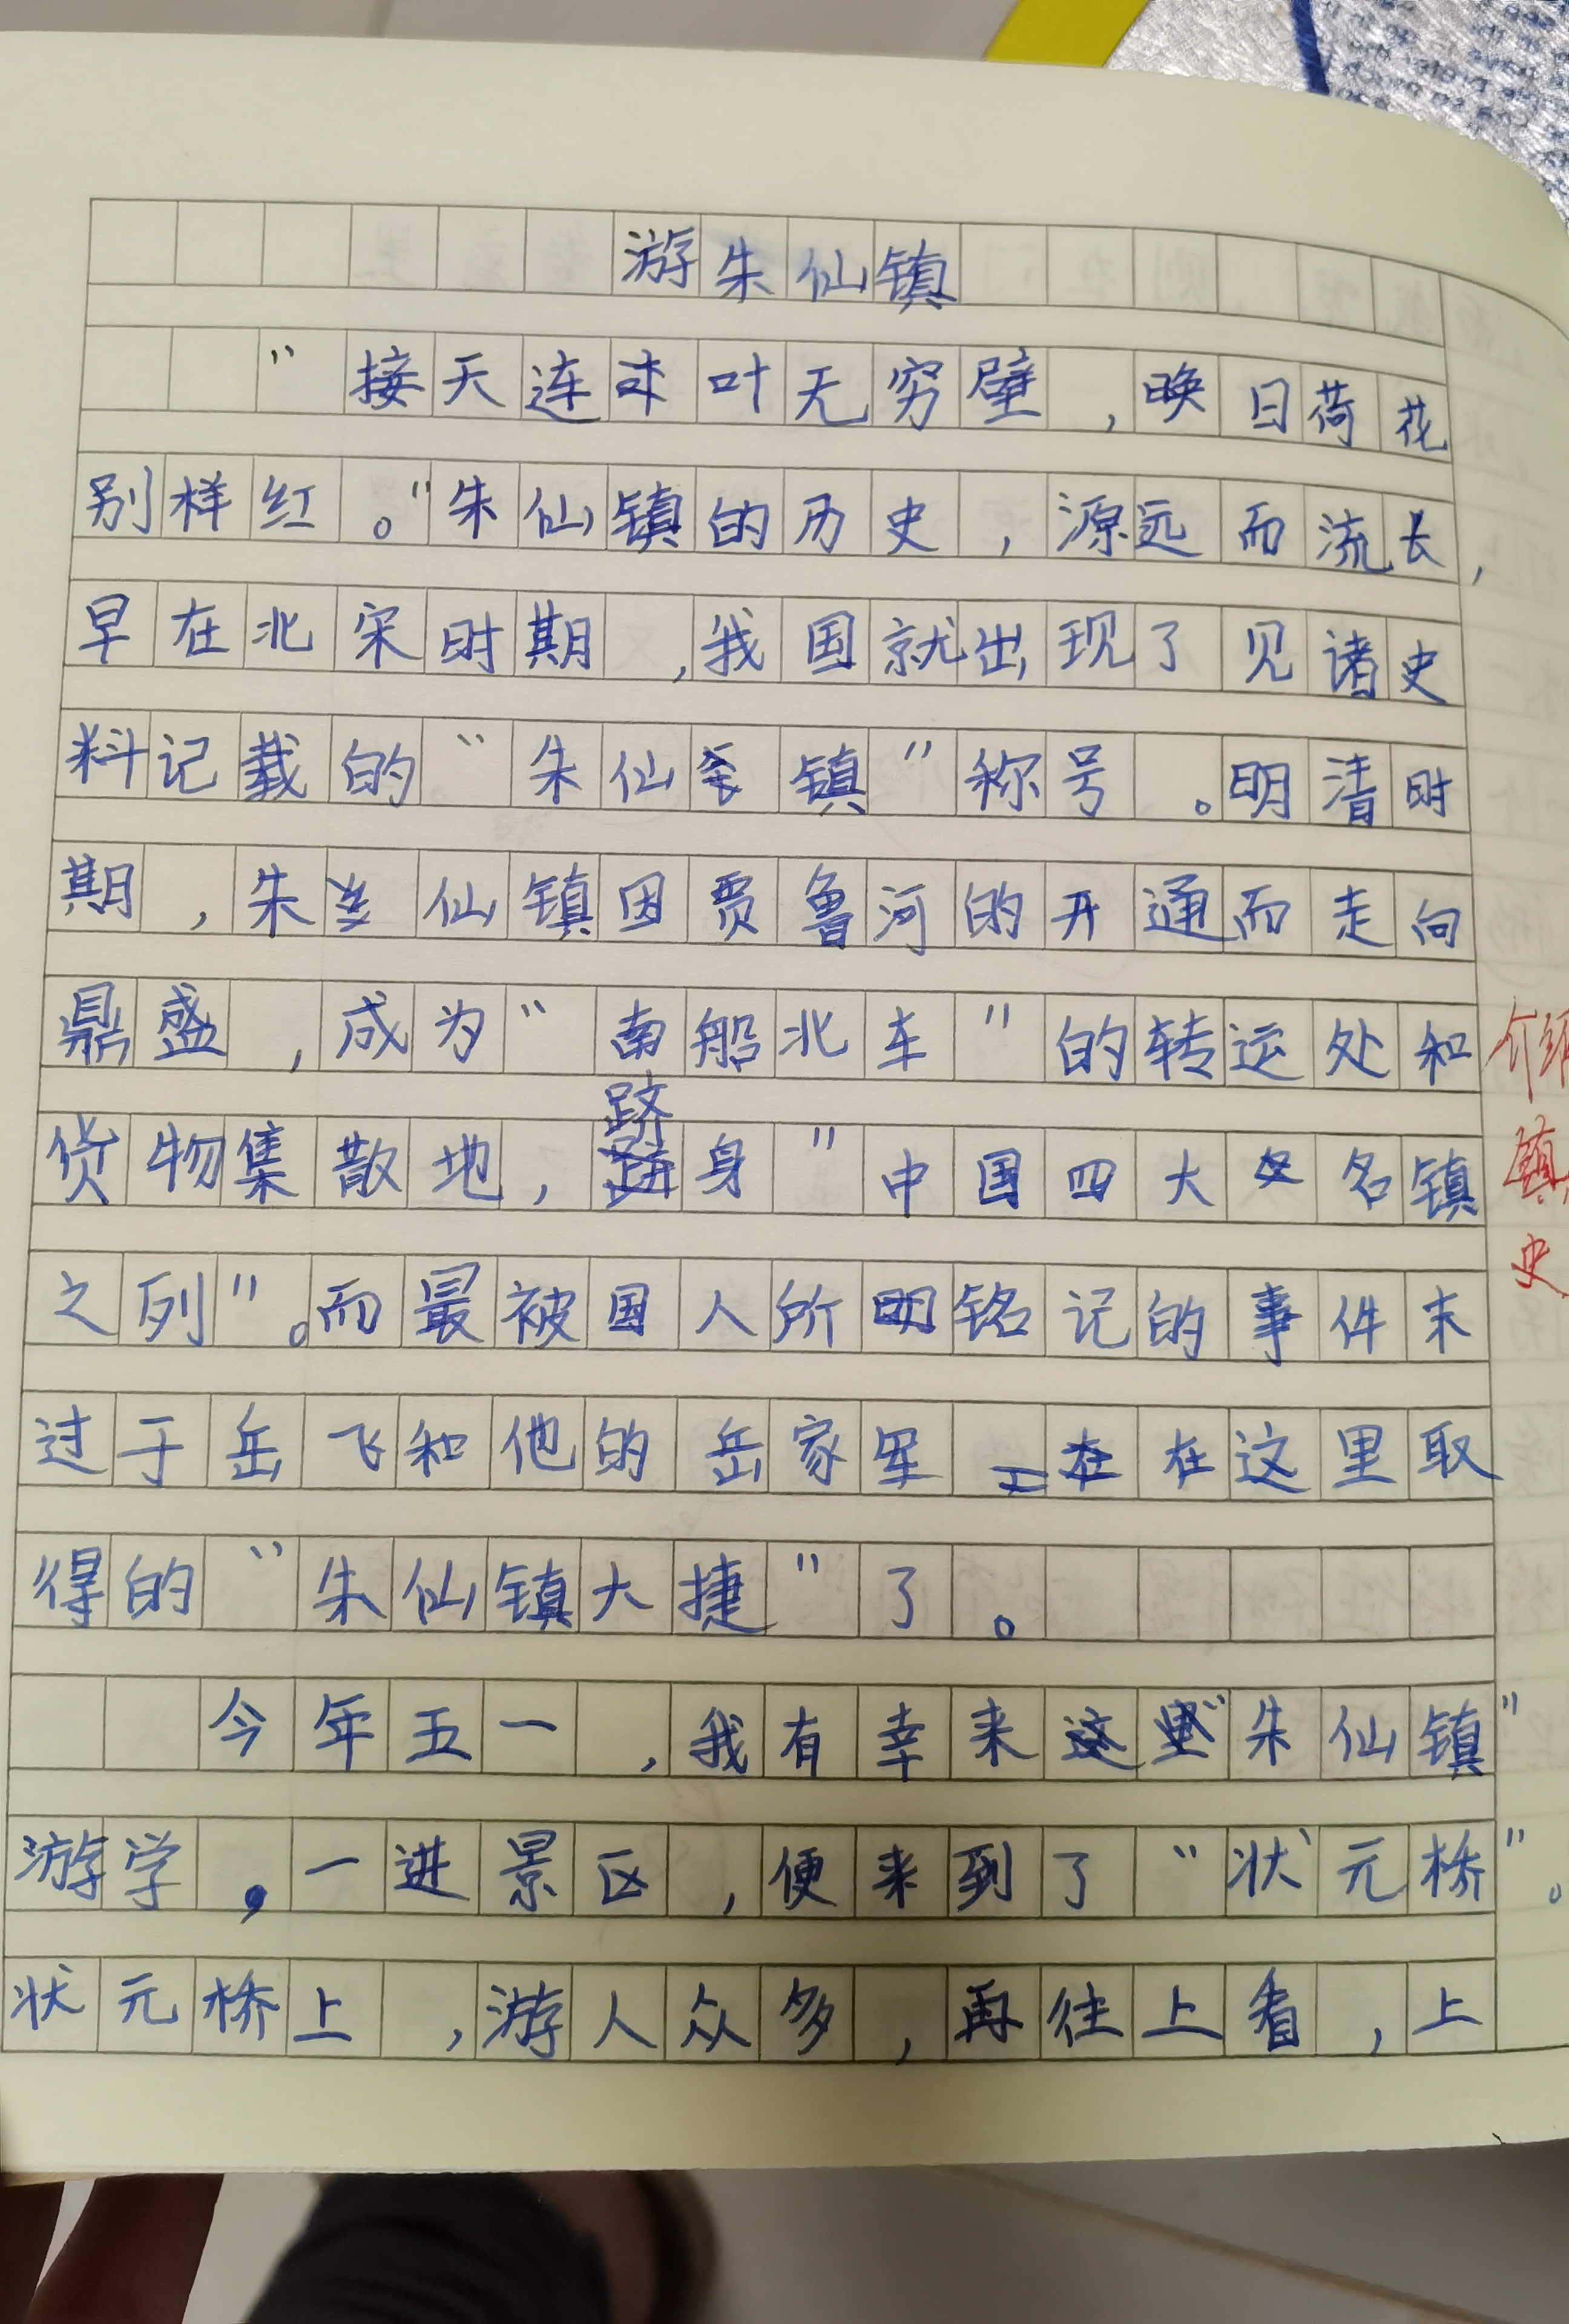 游朱仙镇
“接天连叶无穷壁，映日荷花
别样红。”朱仙镇的历史，源远而流长，
早在北宋时期，我国就出现了见诸史
料记载的“朱仙镇”称号。明清时
期，朱仙镇因贾鲁河的开通而走向
鼎盛，成为“南船北车”的转运处和
货物集散地，跻身“中国四大名镇
之列”。而最被国人所铭记的事件末
过于岳飞和他的岳家军在这里取
得的“朱仙镇大捷”了。
今年五一，我有幸来“朱仙镇”
游学，一进景区，便来到了“状元桥”。
状元桥上，游人众多，再往上看，上
介绍
镇
史